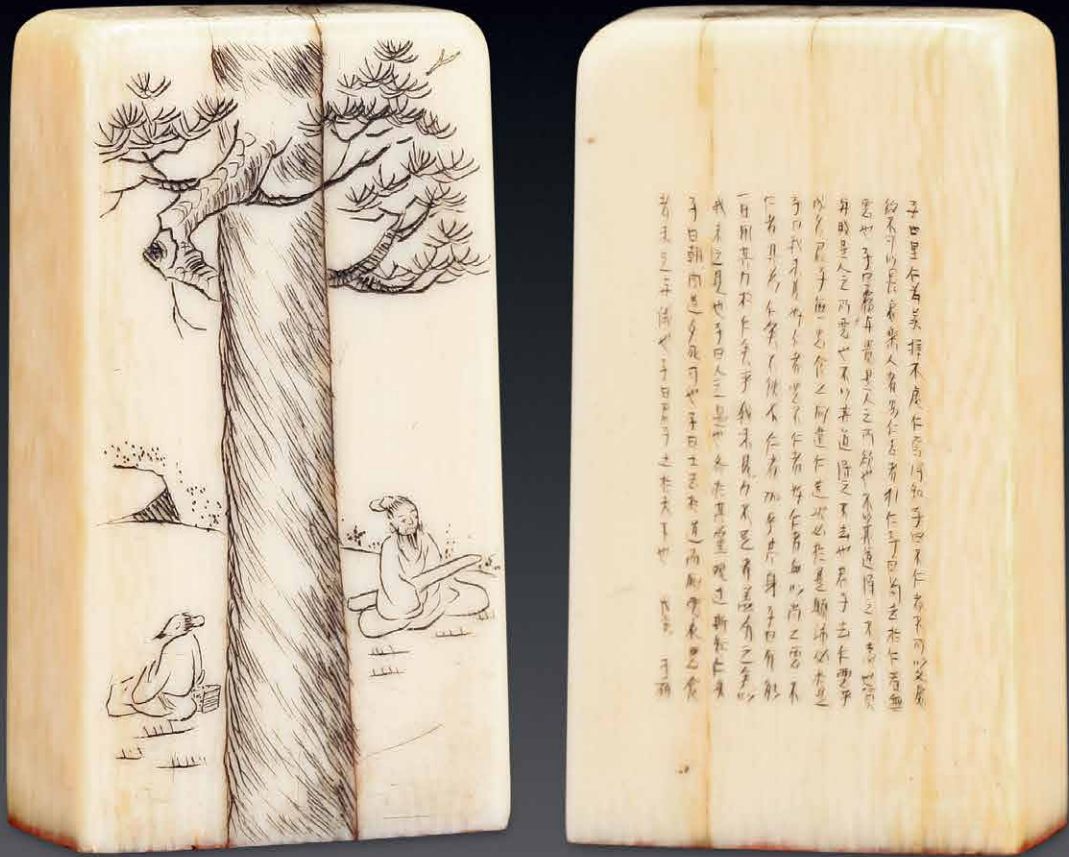 子曰里仁為美擇不處仁焉得知子曰不仁者不可以久處
約不可以長處樂仁者安仁知者利仁子曰苟志於仁者無
惡也子曰富與貴是人之所欲也不以其道得之不處也貧
與賤是人之所惡也不以其道得之不去也君子去仁惡乎
成名君子無終食之間違仁造次必於是顛沛必於是
子曰我未見好仁者惡不仁者好仁者無以尚之惡不
仁者其為仁矣不使不仁者加乎其身子曰有能
一日用其力於仁矣乎我未見力不足者蓋有之矣
我未之見也子曰人之過也各於其黨觀過斯知仁矣
子曰朝聞道夕死可也子曰士志於道而恥惡衣惡食
者未足與議也子曰君子之於天下也 于碩